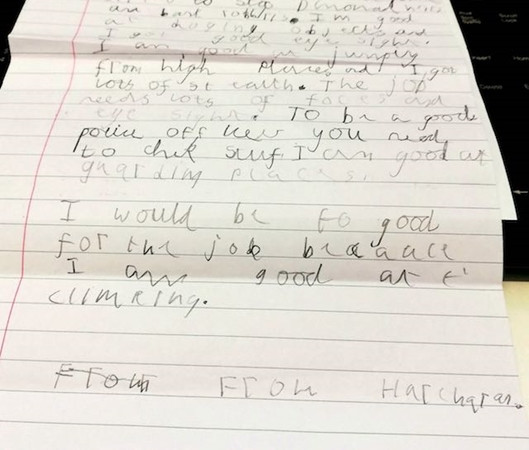 to stop
am bart
at doging objects and
I got good eye sight.
I am good in jumping
from high places and I got
lots of st ealth. The job
needs lots of focas and
eye sight. To be a good
police off you need
to chek stuf. I am good at
guarding places.
I would be to good
for the job because
I am good at
climbing.
From From